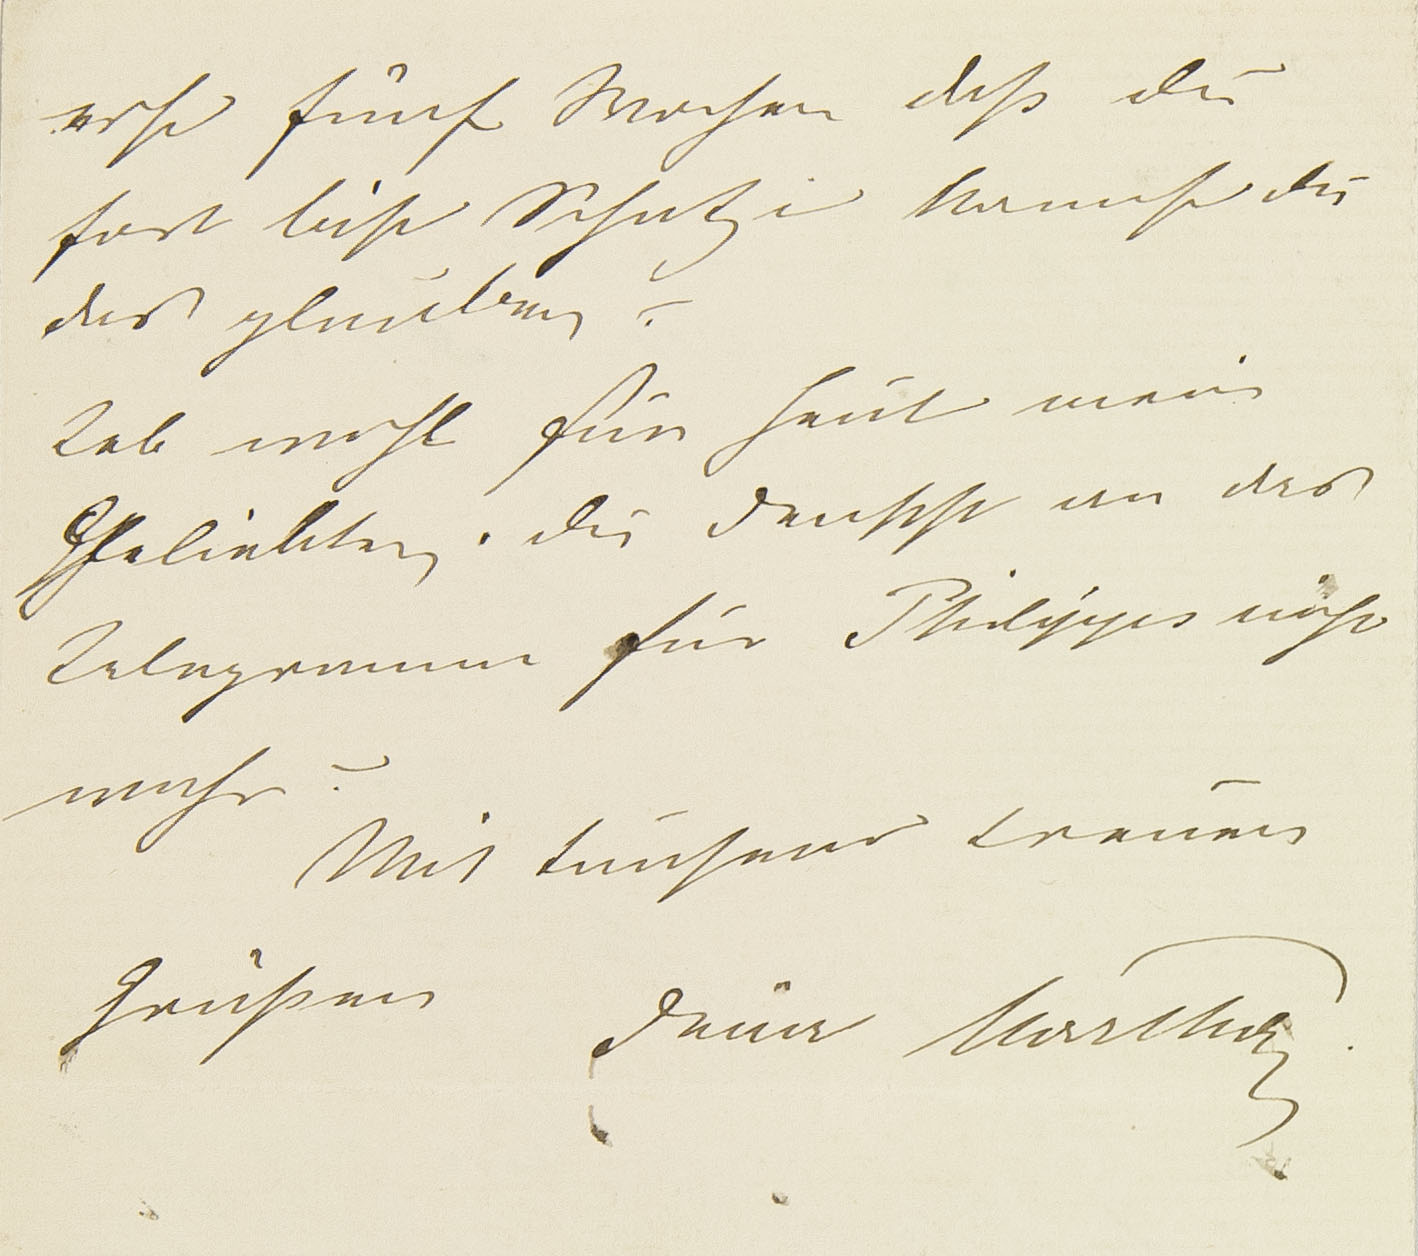 erst fünf Wochen daß du
fort bist Schatzi kannst du
das glauben?
Leb wohl für heut mein
Geliebter. du denkst an das
Telegramm für Philipps nicht
wahr?
Mit tausend treuen
Grüßen Deine Martha.